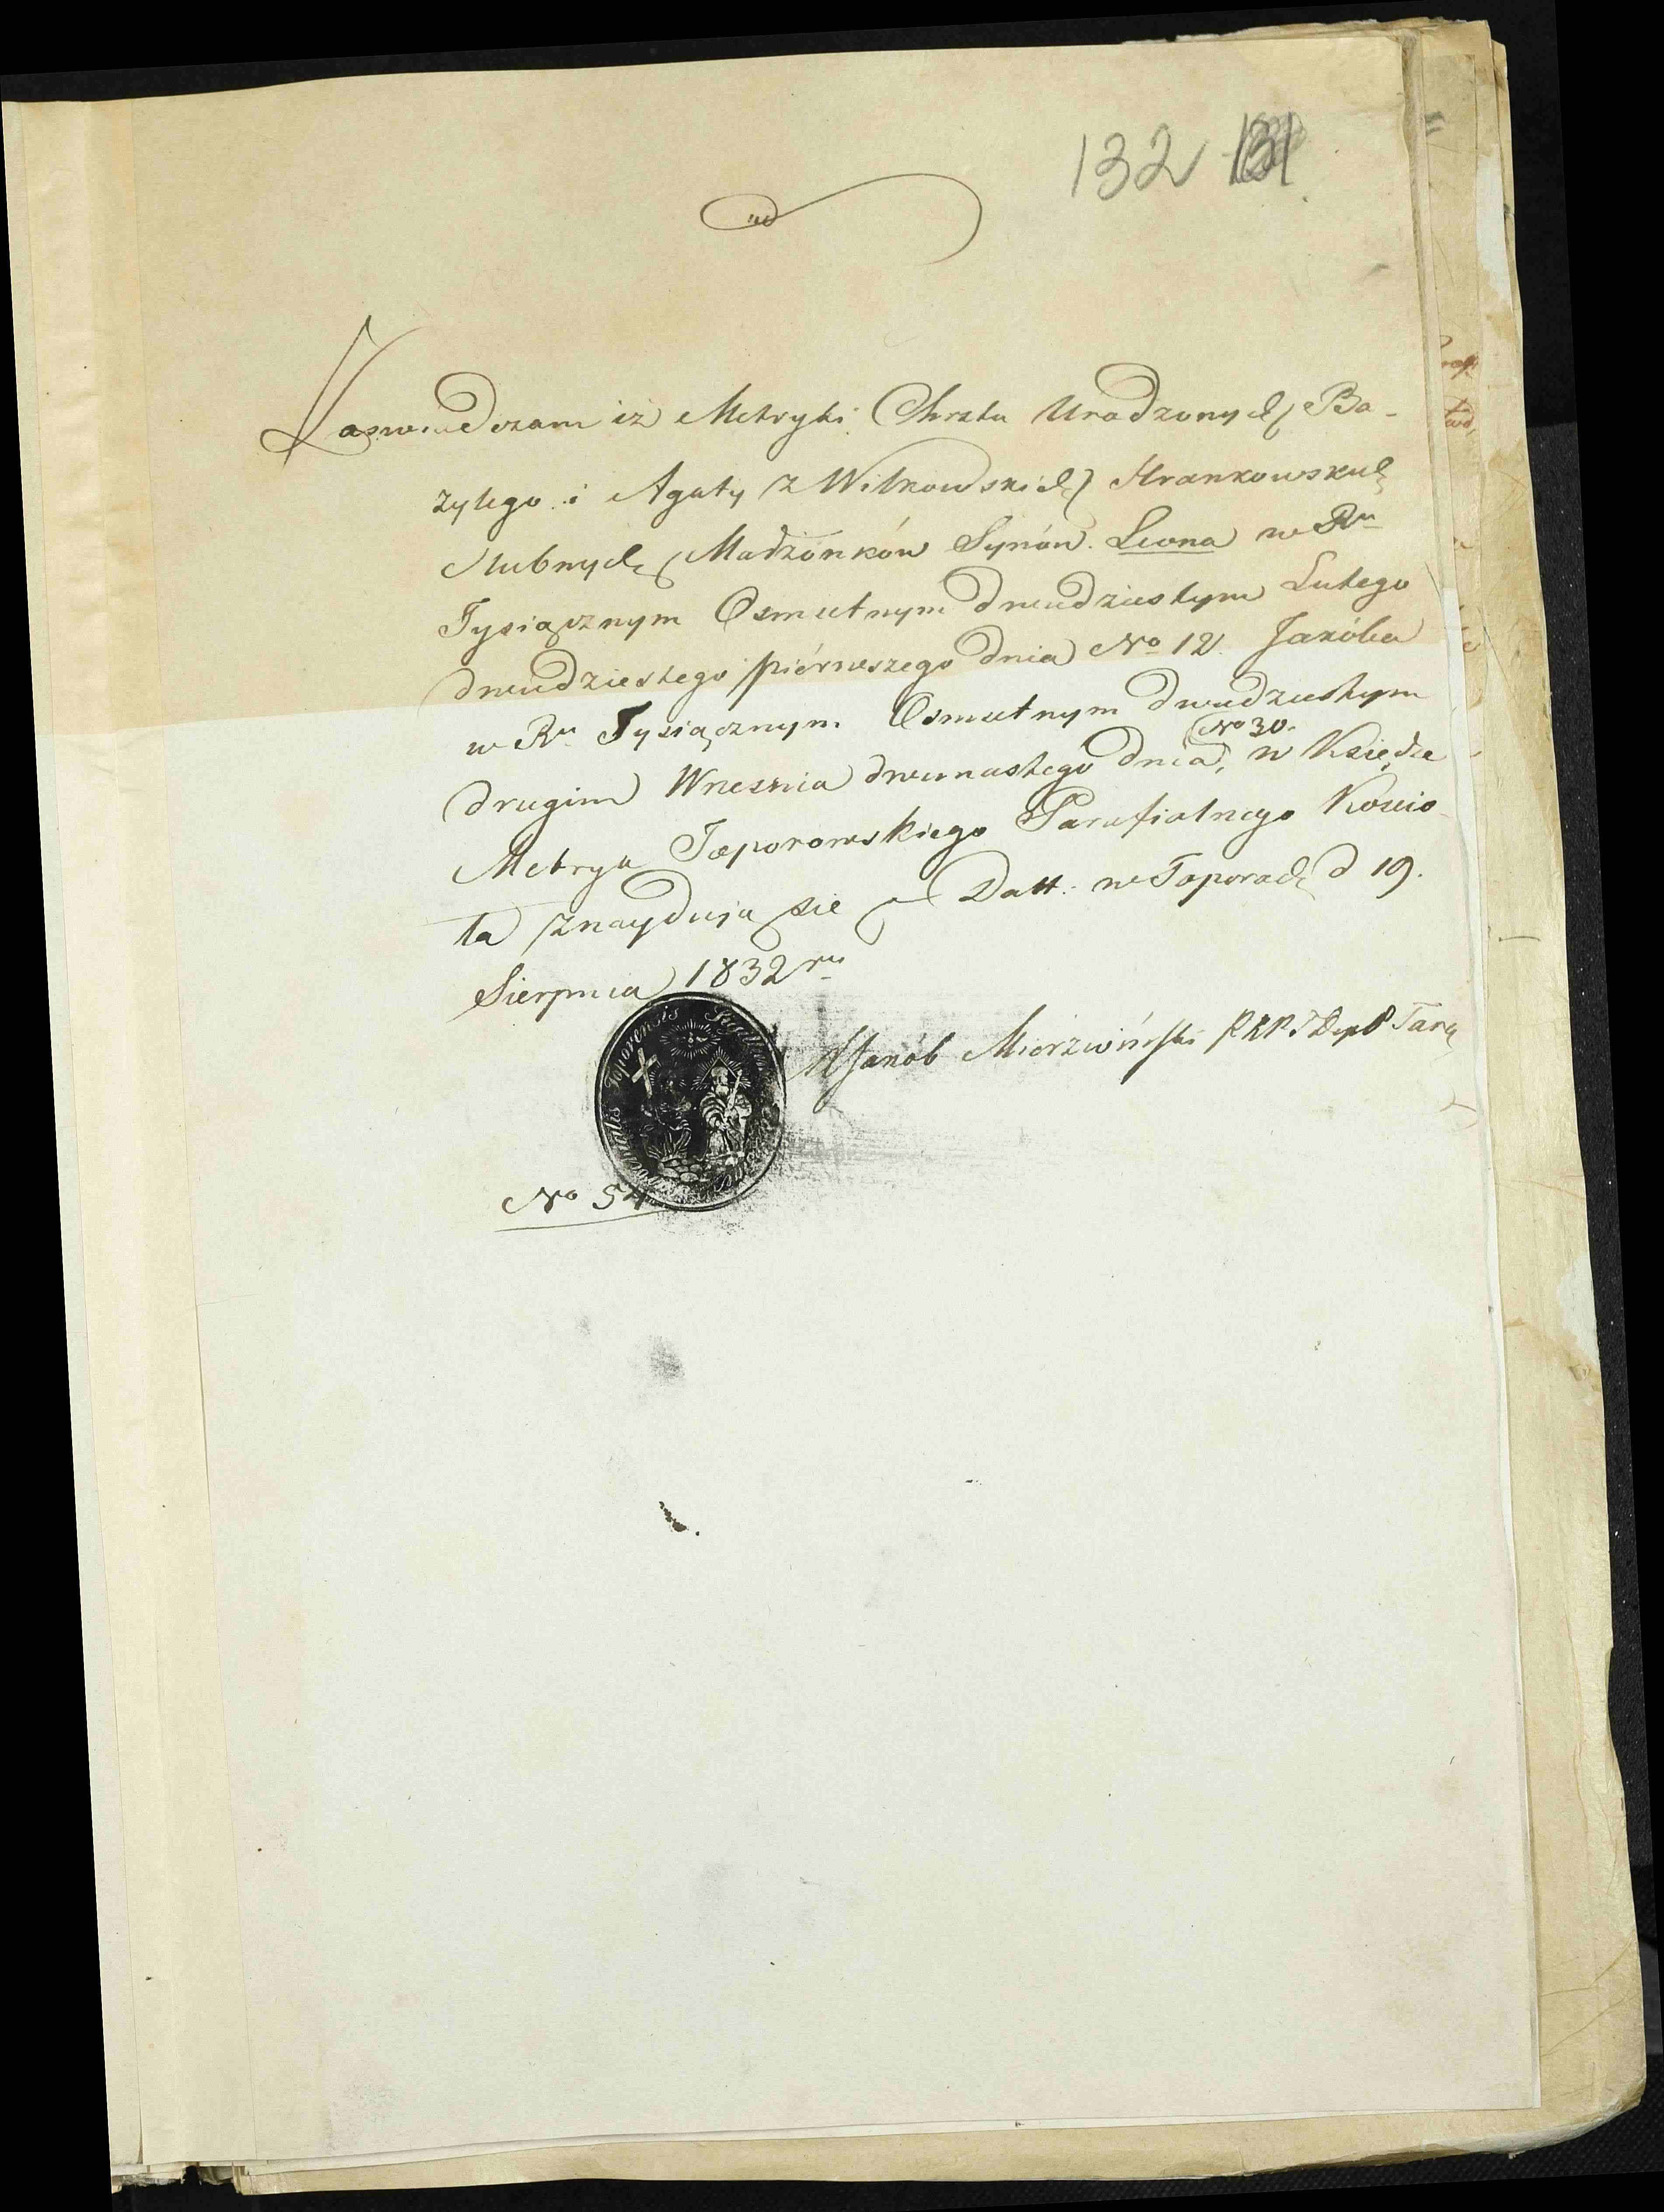 132
Zaswiadczam iż Metryki Chrztu Urodzonych Ba-
zylego i Agaty z Witkowskich Hrankowskich
Slubnych Madżonków Synów. Leona w Ru
Tysiącznym Osmsetnym dwudziestym Lutego
dwudziestego piérwszego dnia No 12. Jakóba
w Ru Tysiącznym Osmsetnym dwudziestym
drugim Wrzesnia dwunastego dnia, No 30. w Księdze
Metryk Toporowskiego Parafialnego Kościo-
ła znaydują się Datt: w Toporach d 19.
Sierpnia 1832 ru
X Jakób Mierzwiński
Toporensis
No 54